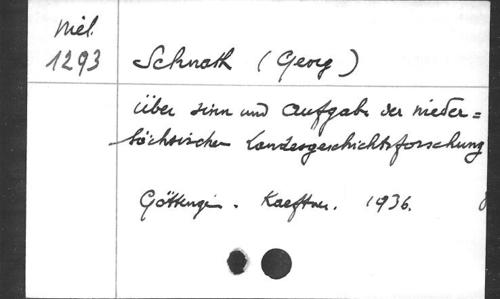 Mél.
1293
Schnath (Georg)
Über Sinn und Aufgabe der nieder=
sächsischen Landesgeschichtsforschung
Göttingen. Kaestner. 1936.